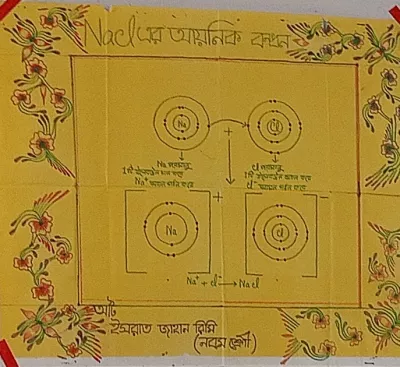 NaCl এর আয়নিক বন্ধন
Na
Cl
+
Na পরমাণু
১টি ইলেকট্রন দান করে
Na⁺ আয়নে পরিণত হয়
Cl পরমাণু
১টি ইলেকট্রন গ্রহণ করে
Cl⁻
+
−
Na
Cl
Na⁺ + Cl⁻ → NaCl
ইসরাত জাহান রিমি
(নবম শ্রেণী)